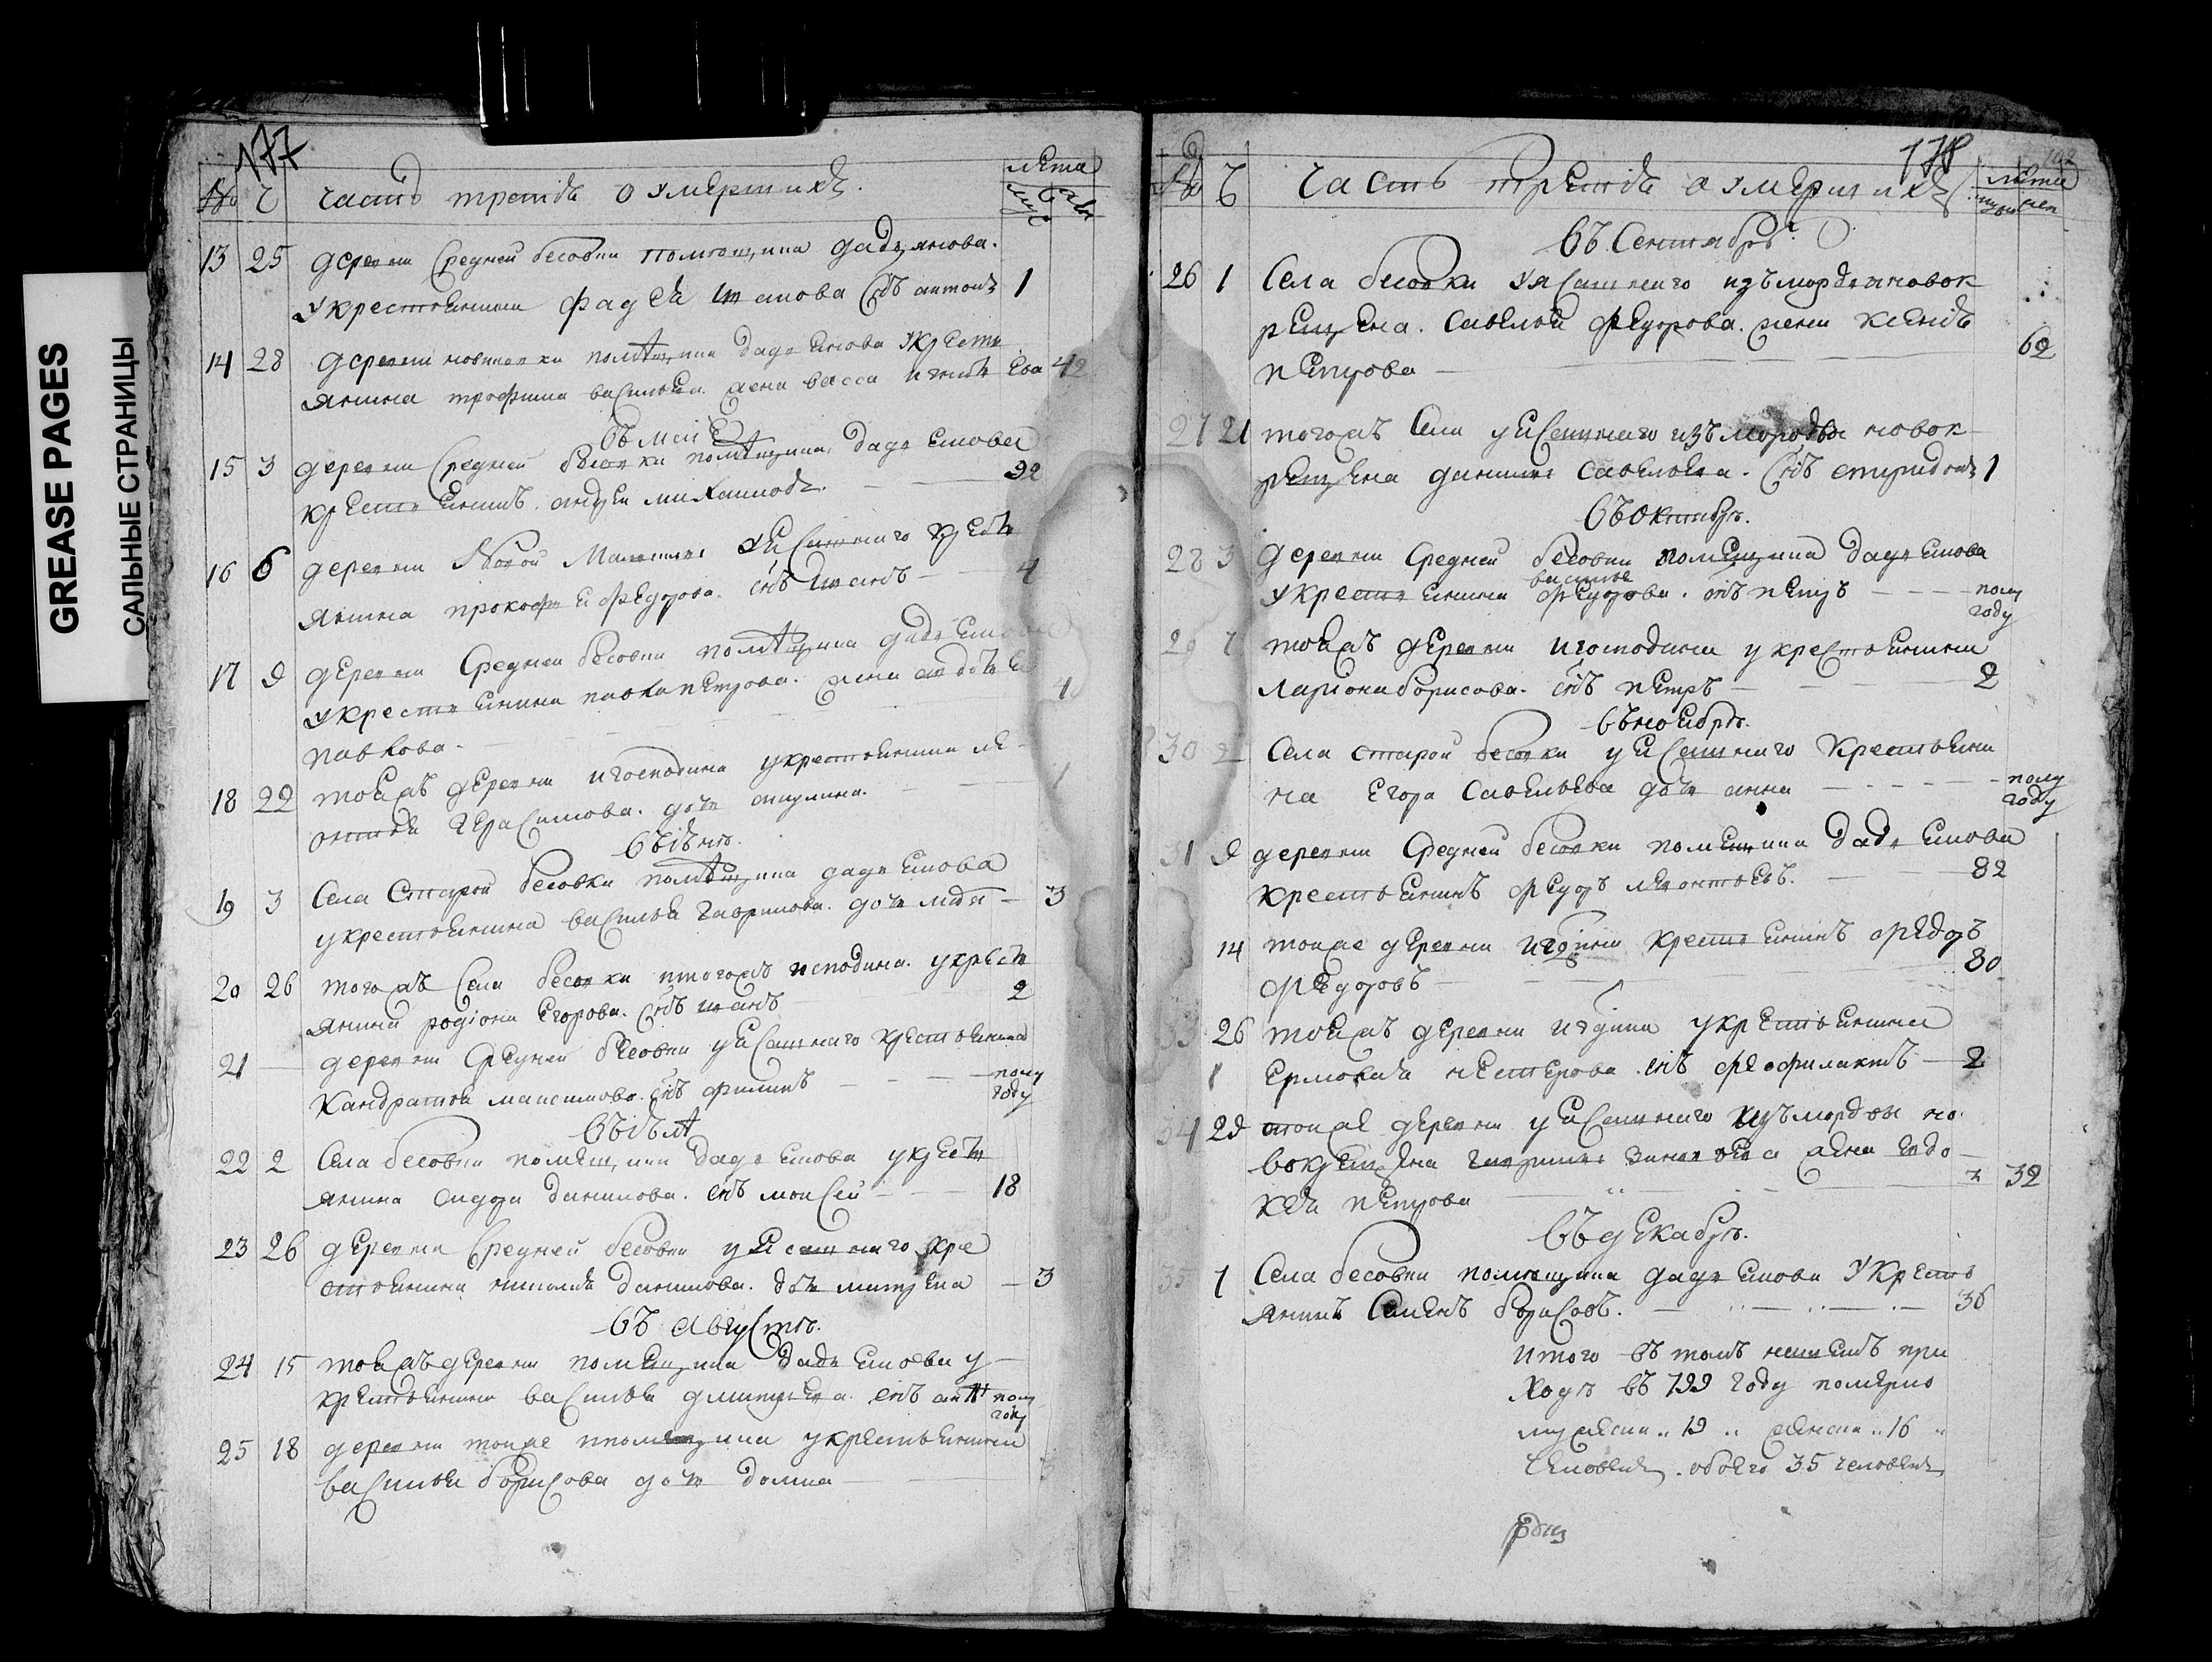 GREASE PAGES
САЛЬНЫЕ СТРАНИЦЫ
177
№ Ч часть третія о умершихъ. лета
муж жен
13 25 деревни Средней бесовки помещика дадиянова.
У крестьянина фадѣя иванова снъ антонъ 1
14 28 деревни помѣщика дадиянова у крестъ
янина трофима васильева жена васса 42
въ маиѣ
15 3 деревни Средней бесовки помѣщика дадиянова
крестьянинъ андреи михаиловъ. 92
16 6 деревни Малыкли ясашнаго крестъ
янина прокофья федорова. снъ иванъ 4
17 9 деревни Средней бесовки помѣщика дадиянова
у крестьянина павла петрова. жена авдотья
павлова.
18 22 тояжъ деревни и господина у крестьянина ле
онтья герасимова. дочь акулина. 1
въ іюнѣ.
19 3 Села Старой бесовки помѣщика дадиянова
у крестьянина василья гаврилова. дочь 3
20 26 тогожъ Села бесовки и тогожъ господина. у крестъ
янина родіона егорова. снъ иванъ 2
21 деревни Средней бесовки ясашнаго крестьянина
кандратья максимова. снъ филипъ полу
году
въ іюлѣ
22 2 Села бесовки помѣщика дадиянова у крестъ
янина сидора данилова. снъ моисей 18
23 26 деревни Средней бесовки у ясашнаго кре
стьянина данилова. дочь матрена 3
въ августѣ.
24 15 тояжъ деревни помѣщика дадиянова у
крестьянина василья дмитриева. снъ полу
году
25 18 деревни тояже помѣщика у крестьянина
василья борисова дочь домна
178
№ Ч часть третія о умершихъ лѣта
муж жен
въ Сентябрѣ
26 1 Села бесовки ясашнаго изъ мордвы новок
рещена. Савелья федорова. жена ксенія
петрова 62
27 21 тогожъ Села ясашнаго изъ мордвы новок
рещена данилы савельева. снъ спиридонъ 1
въ октябрѣ.
28 3 деревни Средней бесовки помещика дадиянова
василья
у крестьянина федорова. снъ петръ полу
году
29 7 тояжъ деревни и господина у крестьянина
ларіона борисова. снъ петръ 2
въ ноябрѣ.
30 2 Села старой бесовки у ясашнаго крестьяни
на егора савельева дочь анна полу
году
31 9 деревни Средней бесовки помещика дадиянова
крестьянинъ федоръ леонтьевъ. 82
14 тояже деревни и гдина крестьянинъ федоръ
федоровъ 80
33 26 тояжъ деревни и гдина у крестьянина
ермолая нестерова снъ феофилактъ 2
34 29 тояже деревни у ясашнаго изъ мордвы но
вокрещена гаврилы зиновьева жена евдо
кея петрова 32
въ декабрѣ.
35 7 Села бесовки помещика дадиянова у крестъ
янинъ Семенъ борисовъ. 36
итого въ томъ нашемъ при
ходѣ въ 799 году померло
мужеска 19 женска 16
человекъ. обоего 35 человекъ